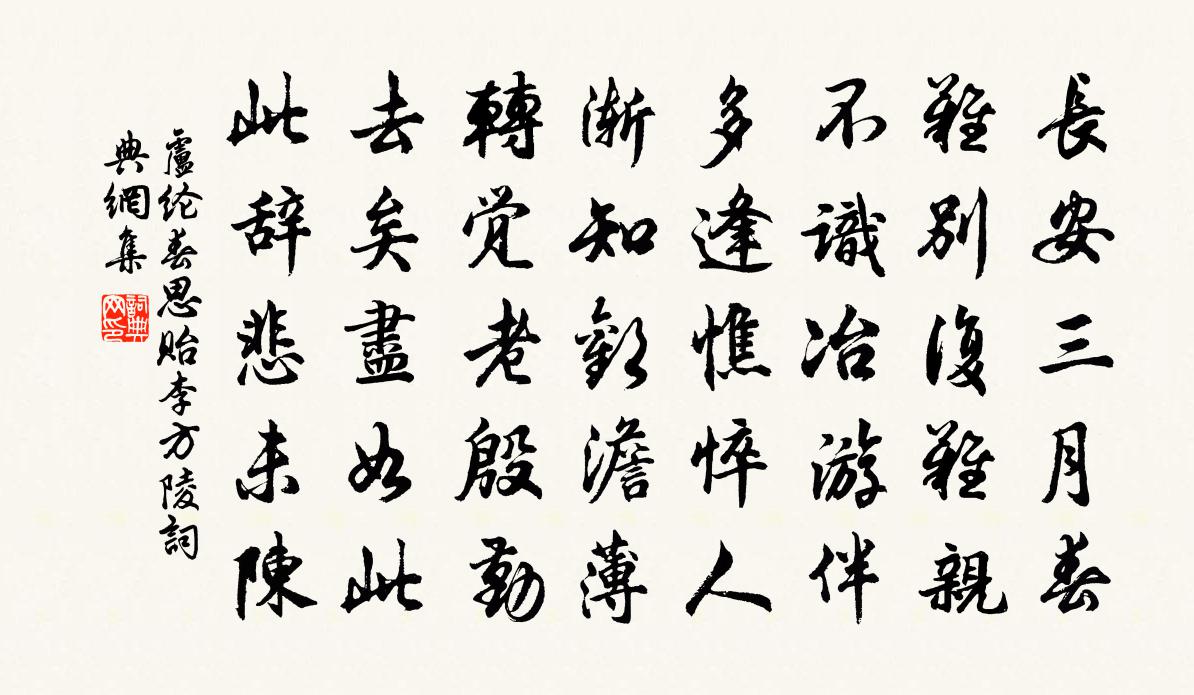 長安三月春
難別復難親
不識冶游伴
多逢憔悴人
漸知歡澹薄
轉覚老殷勤
去矣盡如此
此辞悲未陳
盧纶春思貽李方陵詞
典網集
詞典
网印